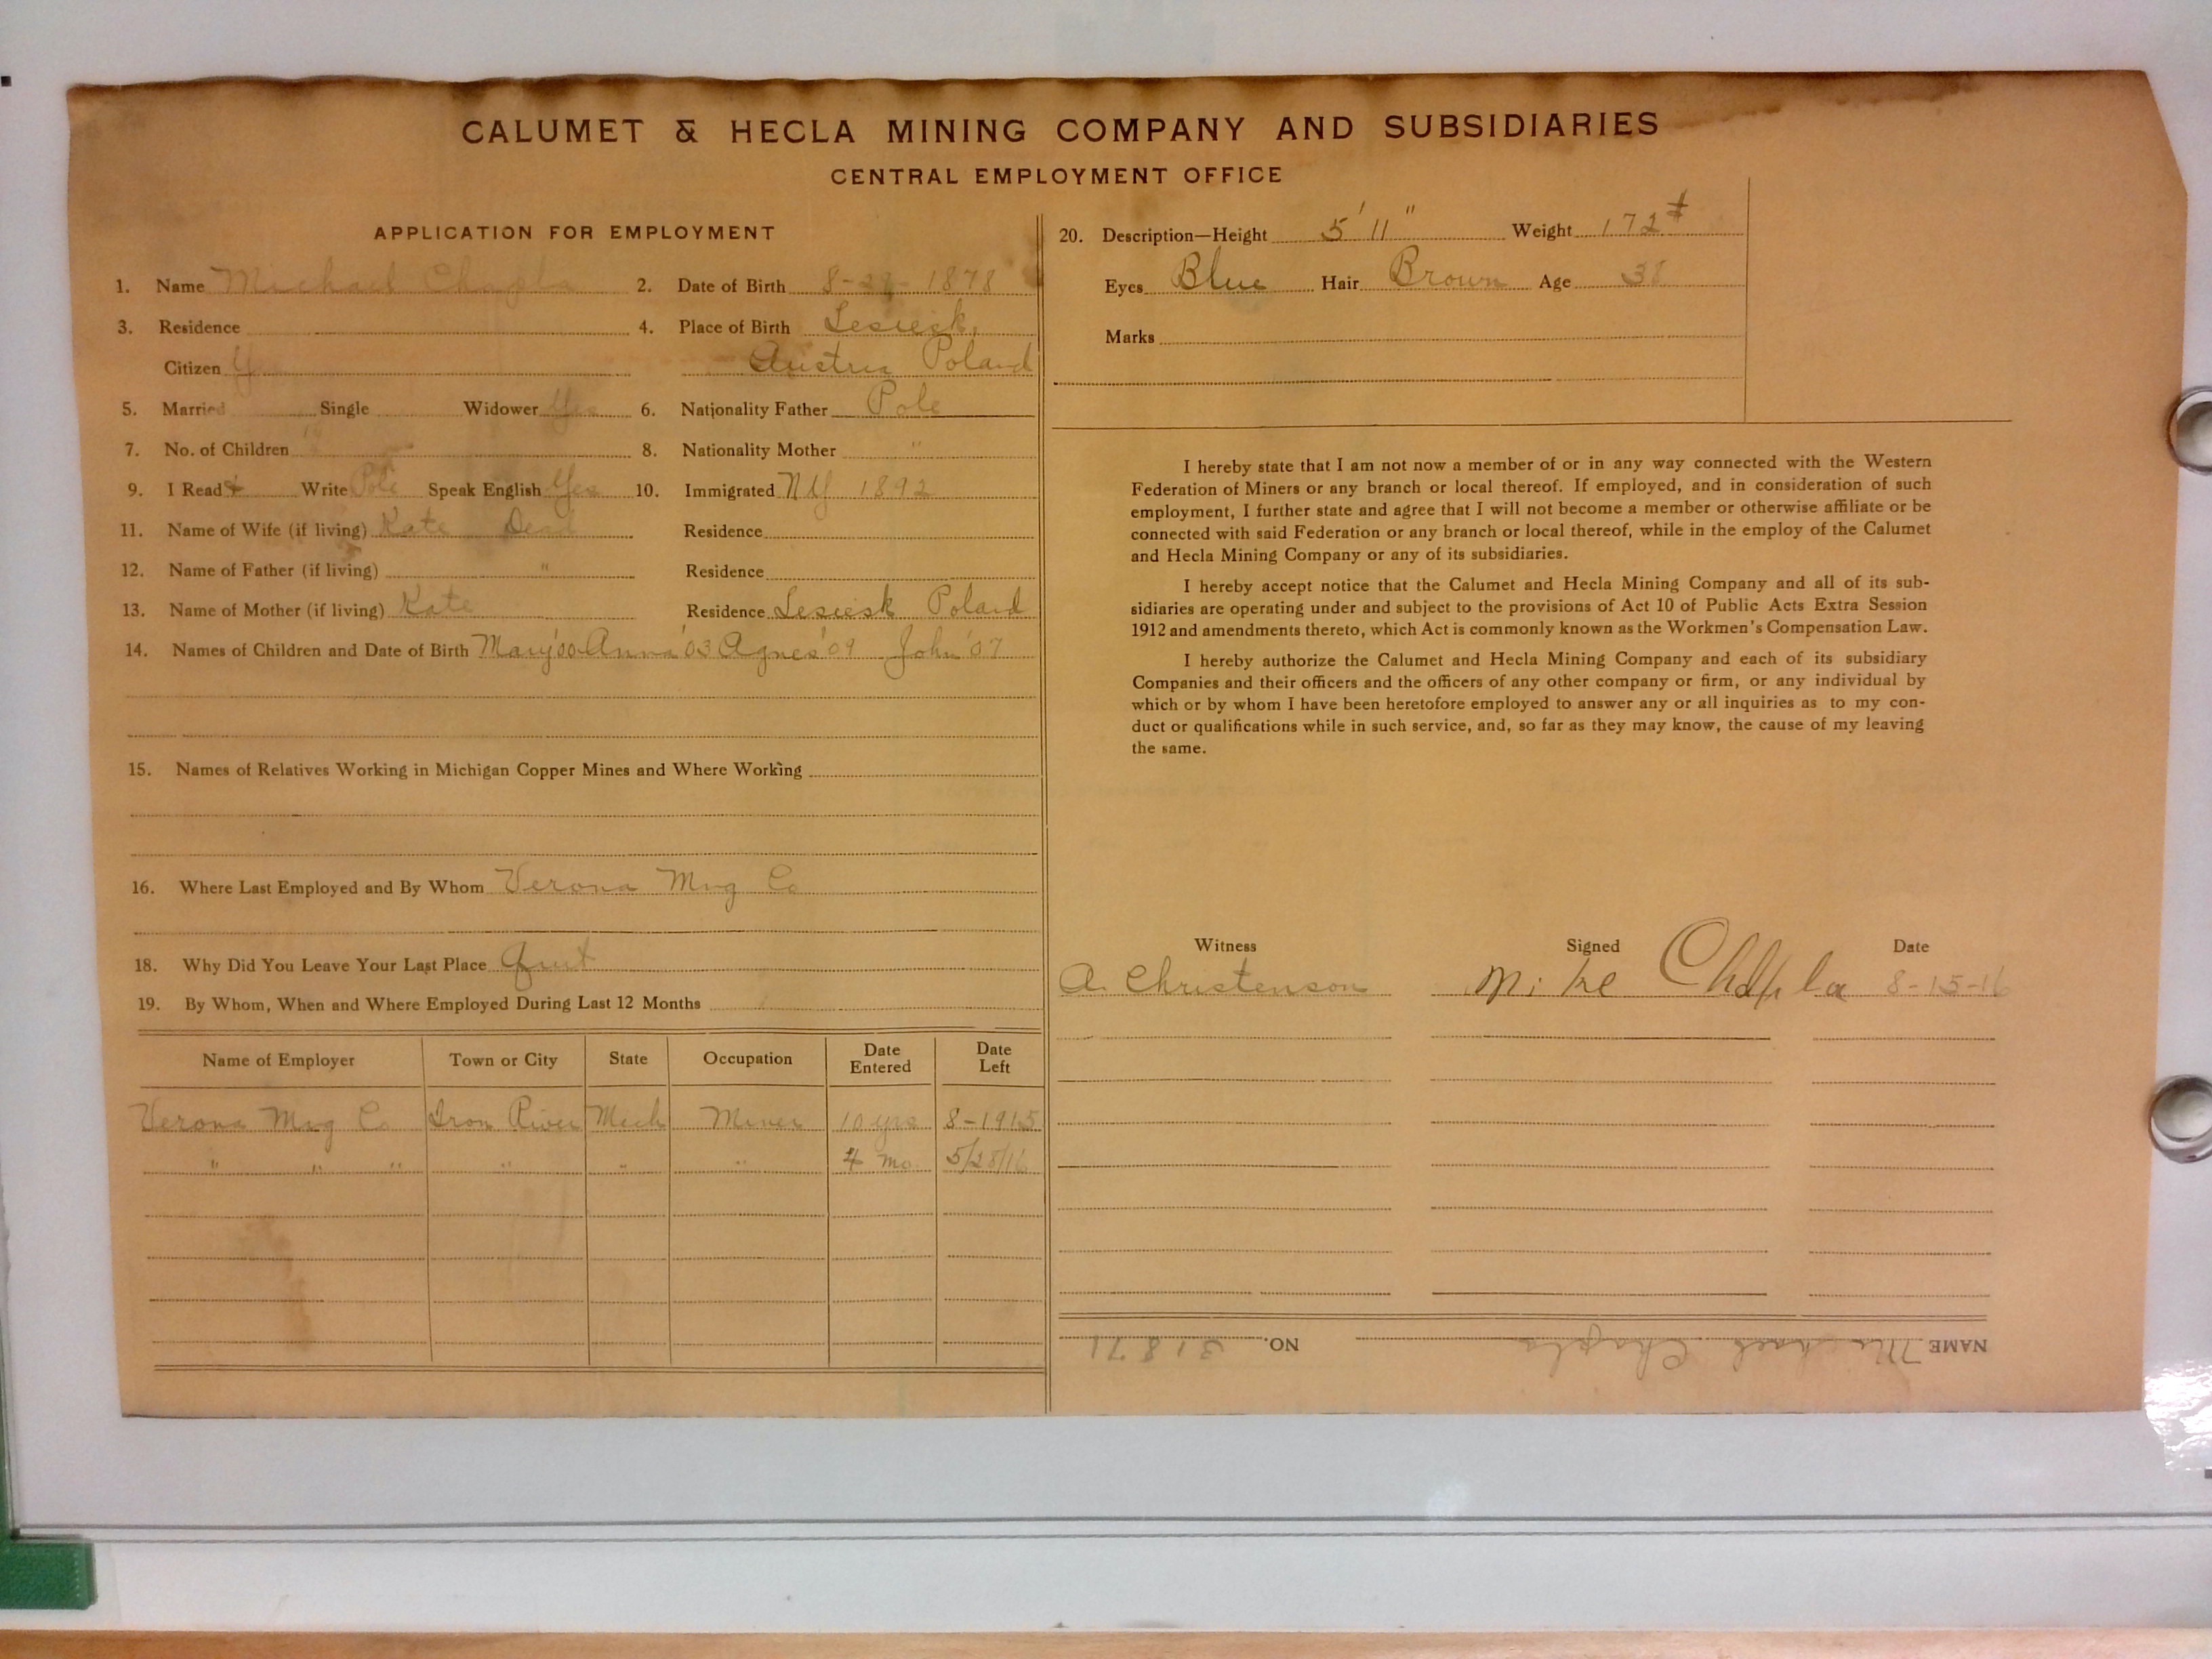 CALUMET & HECLA MINING COMPANY AND SUBSIDIARIES
CENTRAL EMPLOYMENT OFFICE
APPLICATION FOR EMPLOYMENT
1. Name Michael Chapla 2. Date of Birth 8- 1878
3. Residence 4. Place of Birth Lesiesk,
Citizen Austria Poland
5. Married Single Widower Yes 6. Nationality Father Pole
7. No. of Children 8. Nationality Mother "
9. I Read & Write Pole Speak English Yes 10. Immigrated NY 1892
11. Name of Wife (if living) Kate Dead Residence
12. Name of Father (if living) " Residence
13. Name of Mother (if living) Kate Residence Lesiesk Poland
14. Names of Children and Date of Birth Mary '00 Anna '03 Agnes '09 John '07
15. Names of Relatives Working in Michigan Copper Mines and Where Working
16. Where Last Employed and By Whom Verona Mng Co
18. Why Did You Leave Your Last Place Quit
19. By Whom, When and Where Employed During Last 12 Months
Name of Employer Town or City State Occupation Date Entered Date Left
Verona Mng Co Iron River Mich Miner 10 yrs 8-1915
" " " " " " 4 mo. 5/25/16
20. Description—Height 5' 11" Weight 172 #
Eyes Blue Hair Brown Age 38
Marks
I hereby state that I am not now a member of or in any way connected with the Western
Federation of Miners or any branch or local thereof. If employed, and in consideration of such
employment, I further state and agree that I will not become a member or otherwise affiliate or be
connected with said Federation or any branch or local thereof, while in the employ of the Calumet
and Hecla Mining Company or any of its subsidiaries.
I hereby accept notice that the Calumet and Hecla Mining Company and all of its sub-
sidiaries are operating under and subject to the provisions of Act 10 of Public Acts Extra Session
1912 and amendments thereto, which Act is commonly known as the Workmen's Compensation Law.
I hereby authorize the Calumet and Hecla Mining Company and each of its subsidiary
Companies and their officers and the officers of any other company or firm, or any individual by
which or by whom I have been heretofore employed to answer any or all inquiries as to my con-
duct or qualifications while in such service, and, so far as they may know, the cause of my leaving
the same.
Witness Signed Date
A. Christenson Mike Chapla 8-15-16
NAME Michael Chapla NO. 31871